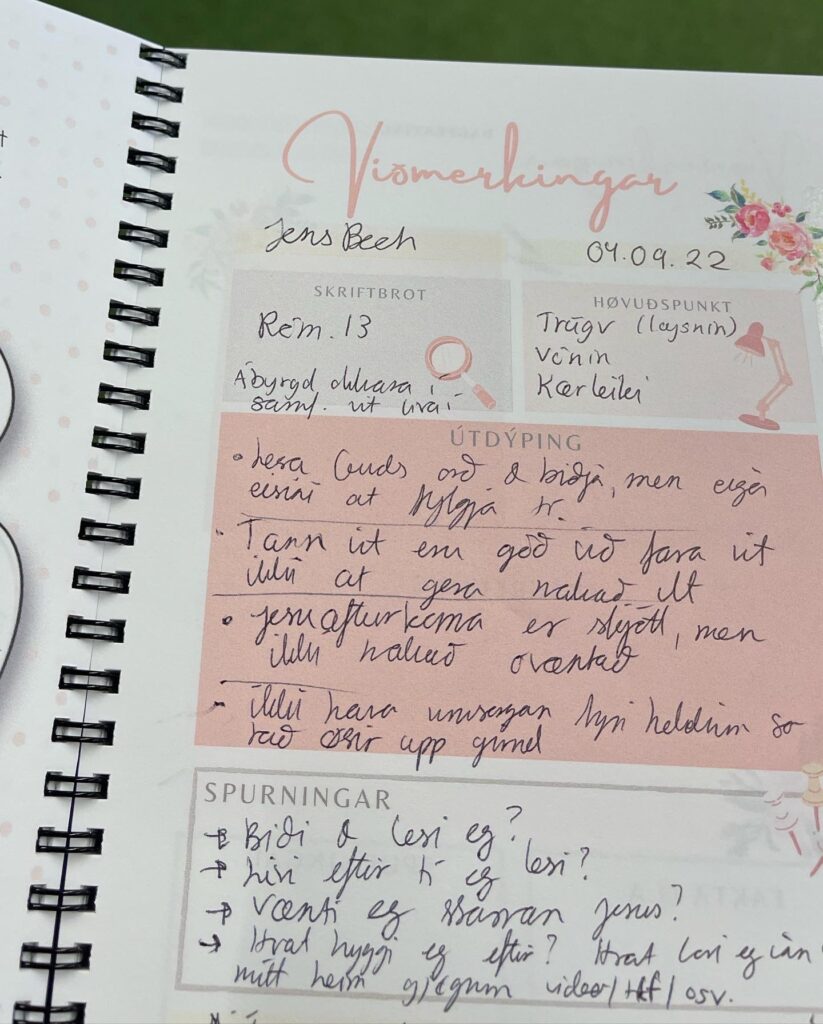 Viðmerkingar
Jens Beck
04.09.22
SKRIFTBROT
Róm. 13
Ábyrgd okkara í
samf. út
HØVUÐSPUNKT
Trúgv (loysnin)
Vónin
Kærleiki
ÚTDÝPING
• Lesa Guds orð & biðja, men eiga
eisini at fylgja tí.
• Tann ið ger góð
ikki at gera nakað ilt
• Jesu afturkoma er skjótt, men
ikki nakað óvæntað
• ikki hava umsorgan fyri holdinum so
tað øsir upp girnd
SPURNINGAR
→ Biði & lesi eg?
→ Livi eftir tí eg lesi?
→ Vænti eg Jesus?
→ Hvat hyggi eg eftir? Hvat lesi eg inn
mítt heim gjøgnum video/ /osv.